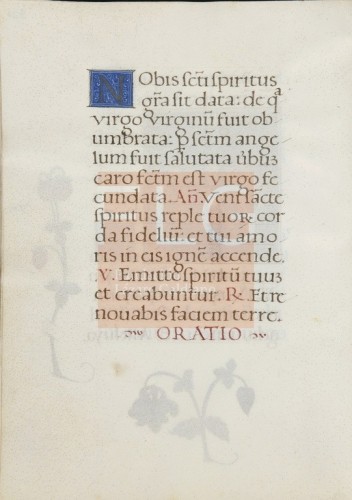 NObis scti spiritus
gra sit data: de qᵃ
virgo virginū fuit ob
umbrata: p sctm ange
lum fuit salutata ūbuʒ
caro fctm est virgo fe
cundata. Añ. Veni sancte
spiritus reple tuor. cor
da fideliū: et tui amo
ris in eis ignē accende.
V. Emitte spiritū tuuʒ
et creabuntur. R. Et re
novabis faciem terre.
ORATIO